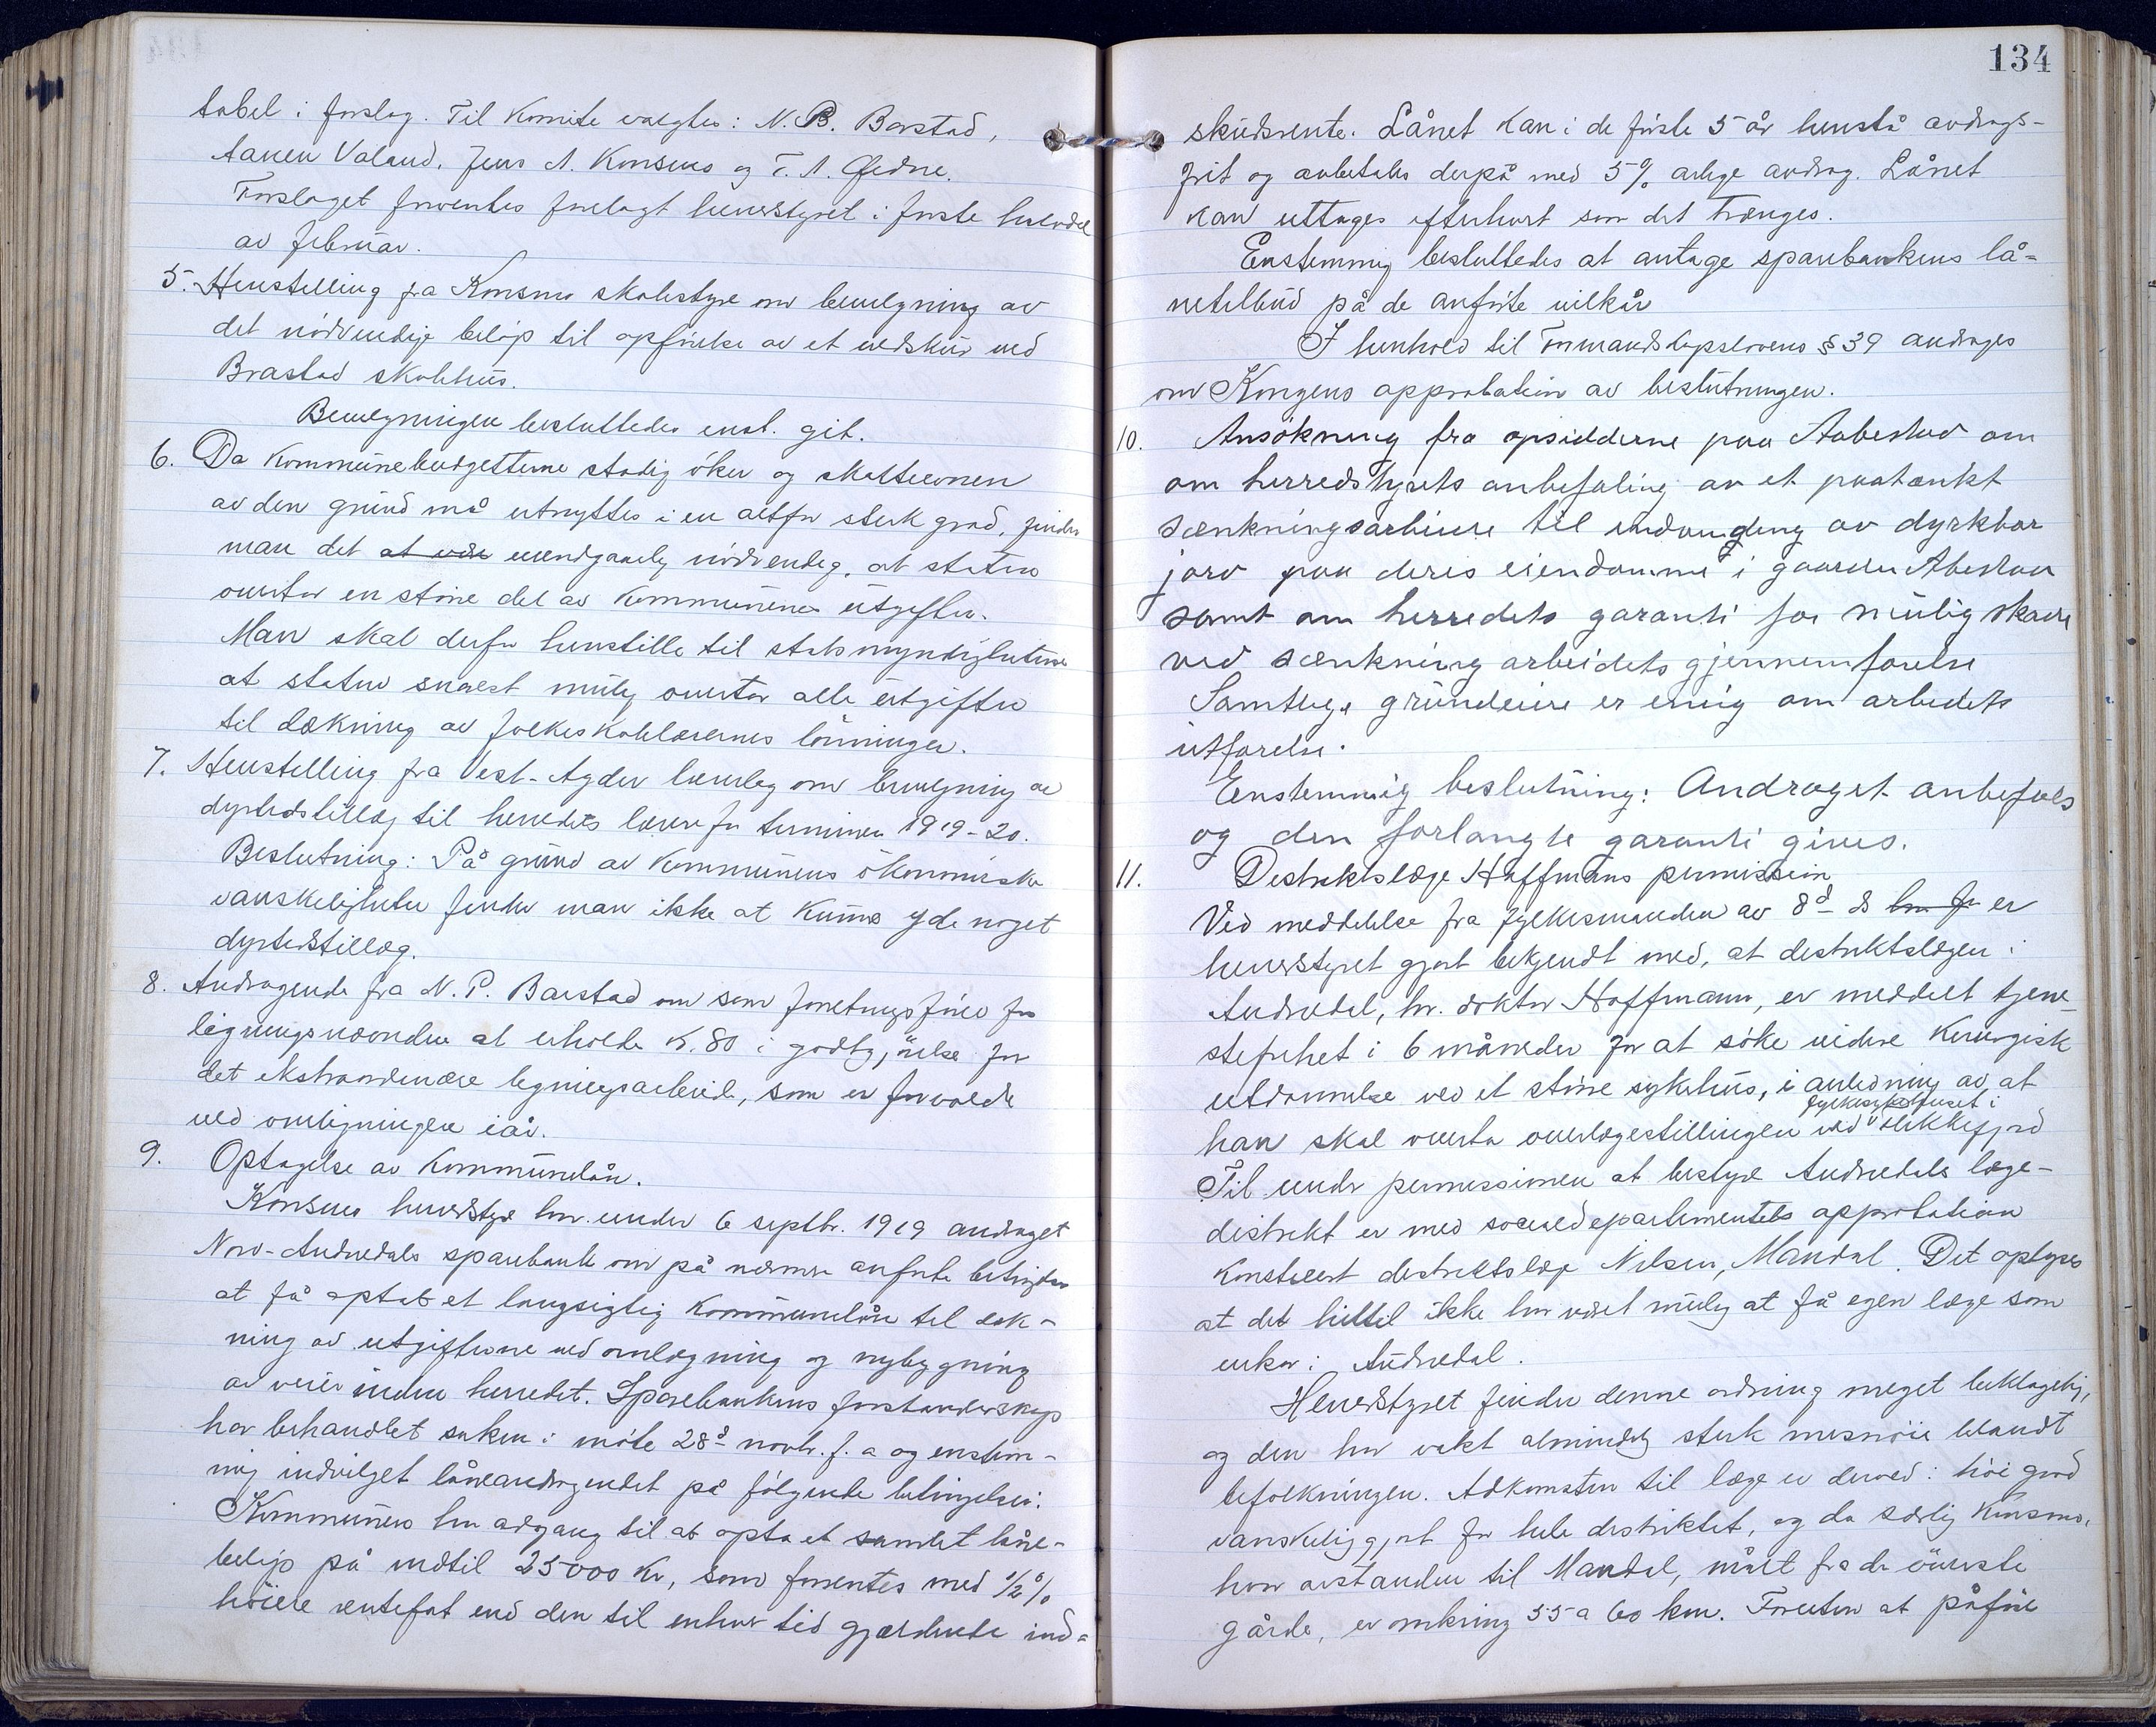 tabel i forslag. Til Komite valgtes: N. B. Barstad,
Aanen Valand, Jens A. Konsmo og T. A. Ødne.
Forslaget forventes forelagt herredstyret i første halvdel
av februar.
5. Henstilling fra Konsmo skolestyre om bevilgning av
det nödvendige belöp til opförelse av et vedskur ved
Brastad skolehus.
Bevilgningen besluttedes enst. git.
6. Da Kommunebudgetterne stadig öker og skatteevnen
av den grund må utnyttes i en altfor sterk grad, finder
man det at være uundgaaelig nödvendig, at staten
overtar en större del av Kommunenes utgifter.
Man skal derfor henstille til statsmyndigheterne
at staten snarest mulig overtar alle utgifter
til dækning av folkeskolelærernes lönninger.
7. Henstilling fra Vest-Agder lærerlag om bevilgning av
dyrtidstillæg til herredets lærere for terminen 1919-20.
Beslutning: På grund av Kommunens ökonomiske
vanskeligheter finder man ikke at kunne yde noget
dyrtidstillæg.
8. Andragende fra N. P. Barstad om som forretningsförer for
ligningsnævnden at erholde K. 80 i godtgjörelse for
det ekstraordinære ligningsarbeide, som er forvoldt
ved omligningen iår.
9. Optagelse av Kommunelån.
Konsmo herredstyre har under 6 septbr. 1919 andraget
Nord-Audnedals sparebank om på nærmere anförte betingelser
at få optat et langsigtig Kommunelån til dæk-
ning av utgifterne ved omlægning og nybygning
av veier inden herredet. Sparebankens forstanderskap
har behandlet saken i möte 28d- novbr. f. a og enstem-
mig indvilget låneandragendet på fölgende betingelser:
Kommunen har adgang til at opta et samlet låne-
belöp på indtil 25000 Kr, som forrentes med 1/2 %
höiere rentefot end den til enhver tid gjældende ind-
134
skudsrente. Lånet kan i de förste 5 år henstå avdrags-
frit og avbetales derpå med 5% årlige avdrag. Lånet
kan uttages efterhvert som det trænges.
Enstemmig besluttedes at antage sparebankens lå-
netilbud på de anförte vilkår
I henhold til Formandskapslovens § 39 andrages
om Kongens approbation av beslutningen.
10. Ansökning fra opsidderne paa Aabestad om
om herredstyrets anbefaling av et paatænkt
sænkningsarbeide til indvinding av dyrkbar
jord paa deres eiendomme i gaarden Abestad
samt om herredets garanti for mulig skade
ved sænkning arbeidets gjennemførelse
Samtlige grundeiere er enig om arbeidets
utførelse.
Enstemmig beslutning: Andraget anbefales
og den forlangte garanti gives.
11. Distriktslæge Hoffmans permission
Ved meddelelse fra fylkesmanden av 8d- ds har for er
herredstyret gjort bekjendt med, at distriktslægen i
Audnedal, hr. doktor Hoffmann, er meddelt tjene-
stefrihet i 6 måneder for at söke videre kirurgisk
utdannelse ved et större sykehus, i anledning av at
fylkessykehuset i
han skal overta overlægestillingen ved Flekkefjord
Til under permissionen at bestyre Audnedals læge-
distrikt er med socialdepartementets approbation
konstituert distriktslæge Nilsen, Mandal. Det oplyses
at det hittil ikke har været mulig at få egen læge som
vikar i Audnedal.
Herredstyret finder denne ordning meget beklagelig,
og den har vakt almindelig sterk misnöie blandt
befolkningen. Adkomsten til læge er derved i höi grad
vanskeliggjort for hele distriktet, og da særlig Konsmo,
hvor avstanden til Mandal, målt fra de överste
gårde, er omkring 55 a 60 km. Foruten at påföre